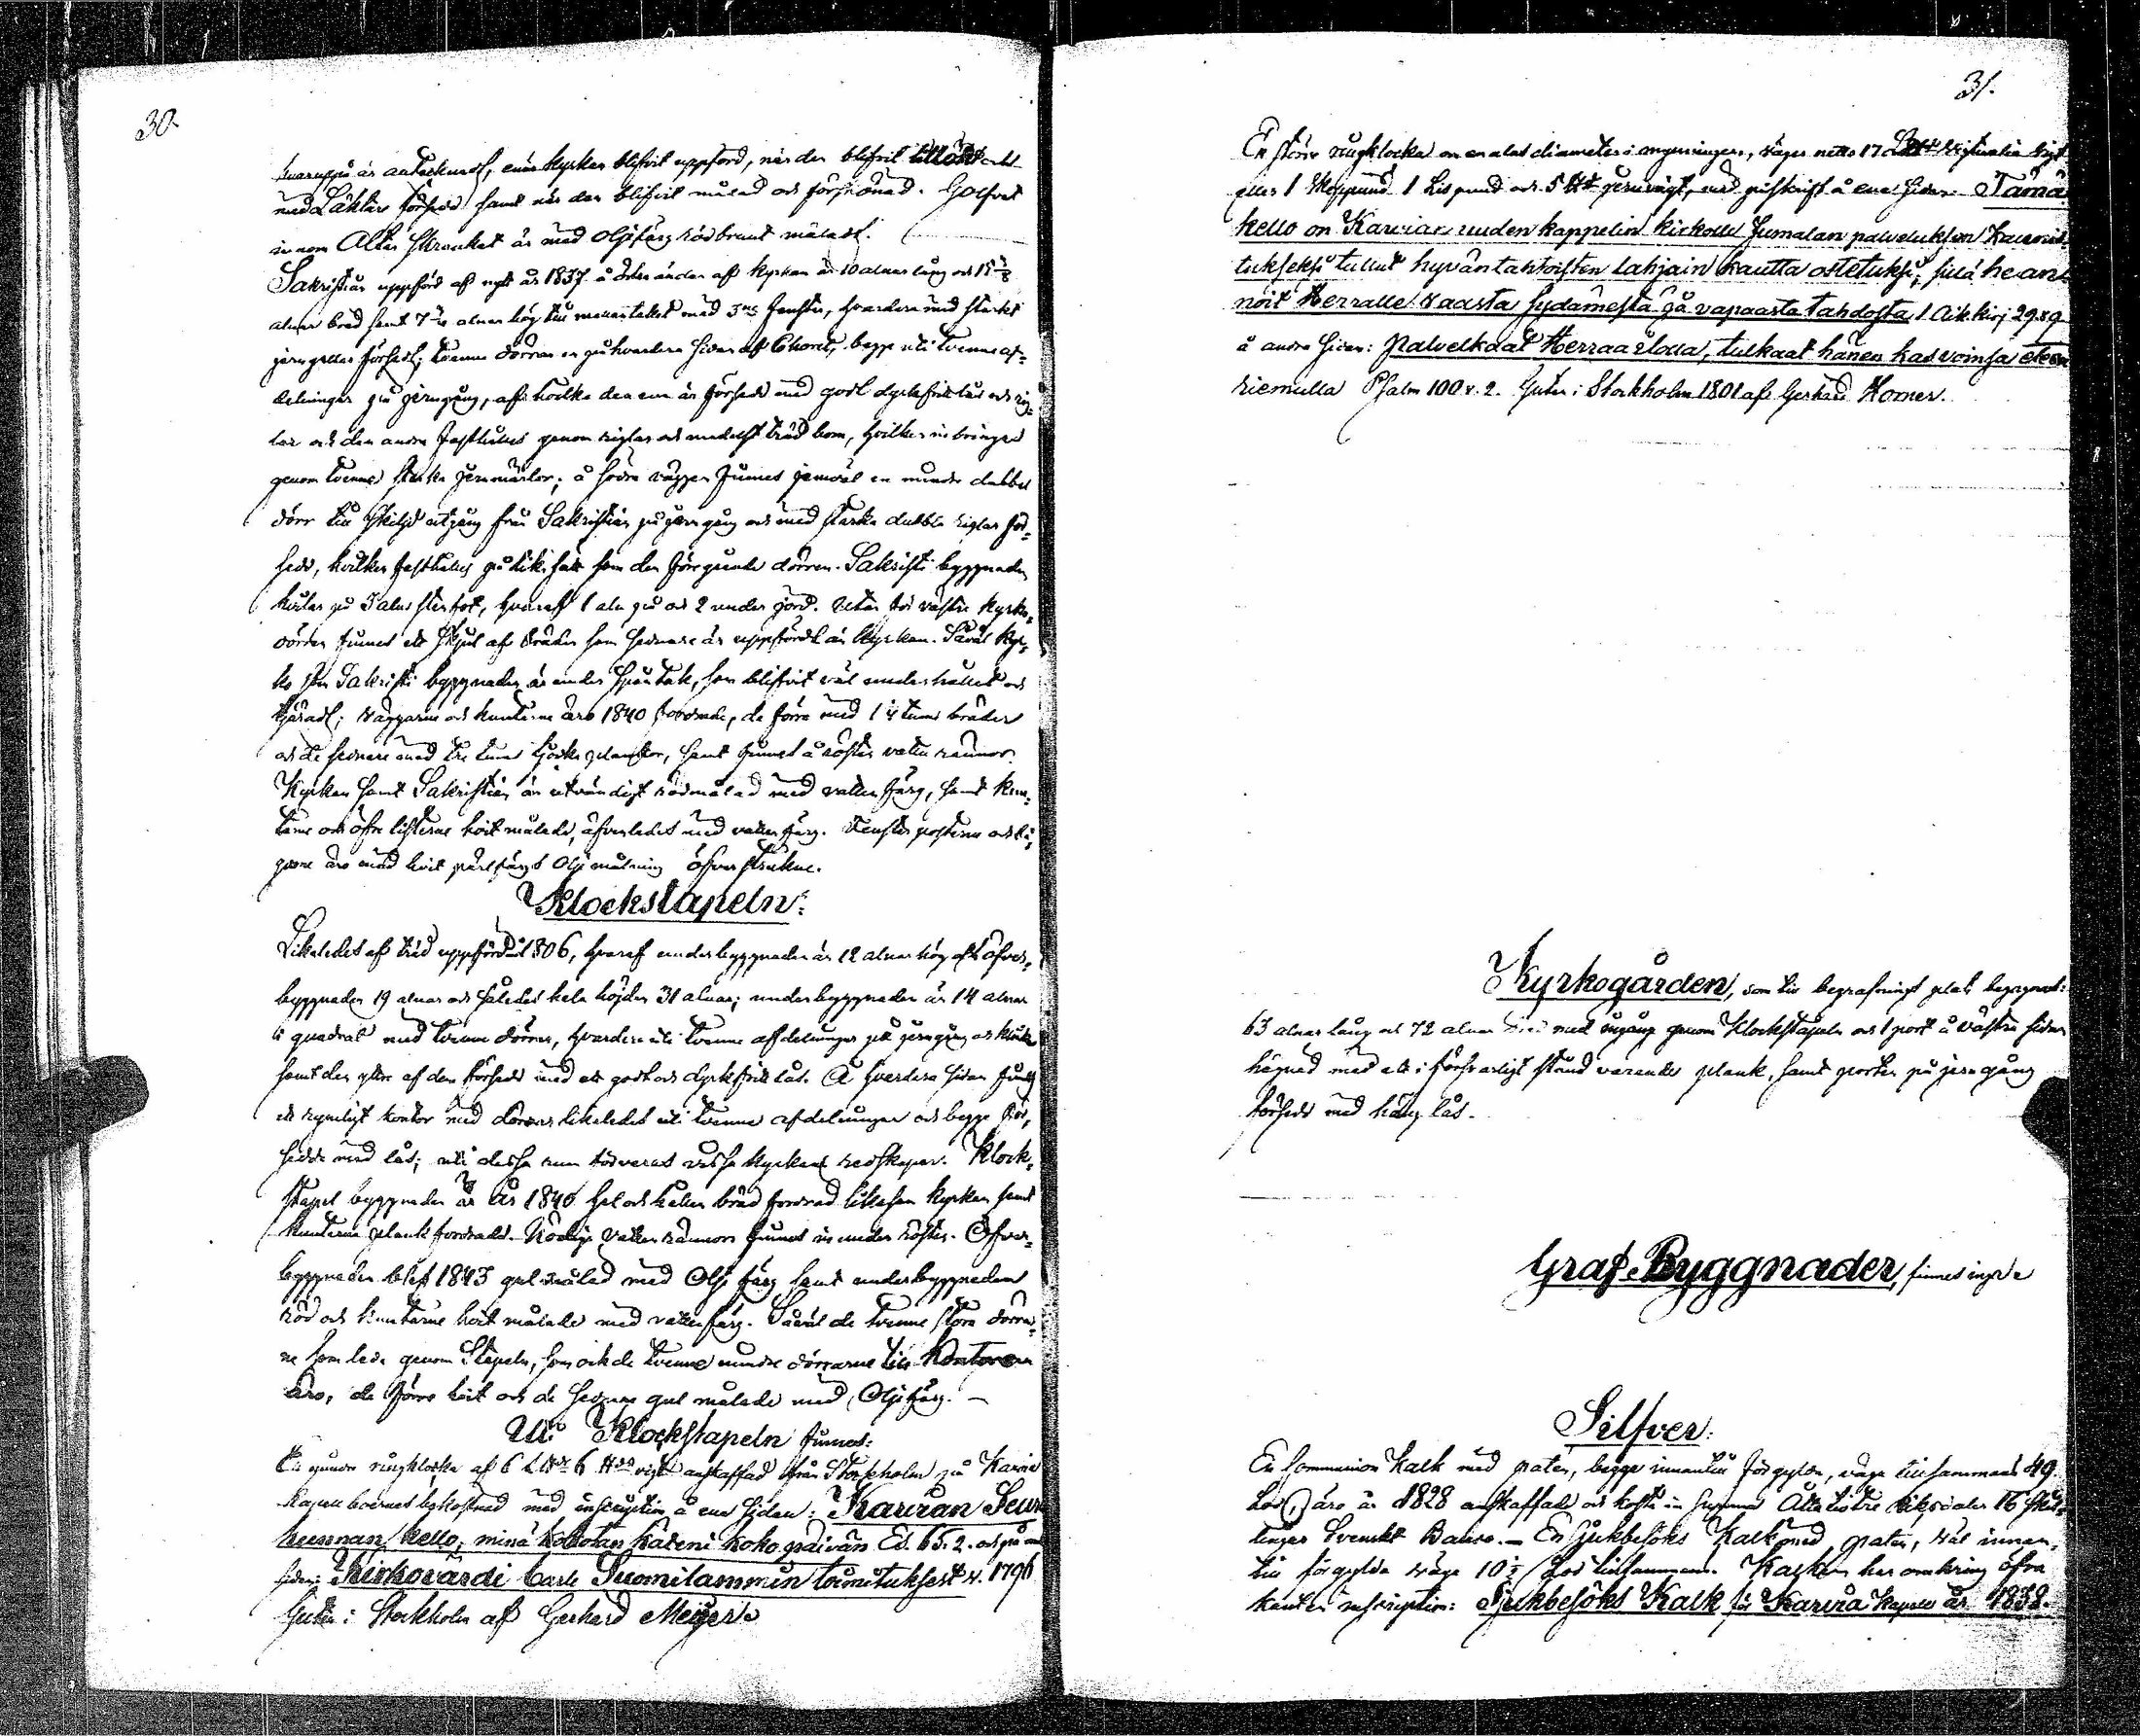 30.
hvaruppå är antecknadt, enär kyrkan blifvit uppförd, när den blifvit
med Läktare försedd samt när den blifvit målad och förskönad. Golfvet
innom Altar Skranket är med Oljefärg rödbrunt måladt.
Sakristian uppförd af nytt år 1837 å östra ändan af kyrkan är 10 alnar lång och 15
alnar bred samt 7 alnar hög till med 3ne fenster, hvardera med starka
jerngaller försedt; tvenne dörrar en på hvardera sidan af Choret, begge uti tvenne af-
delningar på jerngång, af hvilka den ena är försedd med godt dyrkfritt lås och rig-
lar och den andra fasthålles genom riglar och medelst träd bom, hvilken inbringas
genom tvenne starka jernmärlor; å södra väggen finnes jemväl en mindre dubbel
dörr till skild utgång från Sakristian på jerngång och med starka dubbla riglar för-
sedd, hvilken fasthålles på lika sätt som den föregående dörren. Sakristi byggnaden
hvilar på 3 alns stenfot, hvaraf 1 aln på och 2 under jord. Utan för västra kyrko-
dörren finnes ett skjul af bräder som sednare är uppfördt än kyrkan. Såväl kyr-
ko som Sakristi byggnaden är under spåntak, som blifvit väl underhållet och
tjäradt; väggarne och knutarne äro 1840 fodrade, de förra med 1 1/4 tums bräder
och de sednare med tre tums tjocka plankor, samt finnes å röstes vatten rännor.
Kyrkan samt Sakristian är utvändigt rödmålad med vatten färg, samt knu-
tarne och öfre listerne hvit målade, äfvenledes med vatten färg. Fenster posterne och bå-
garne äro med hvit pärlfärgs Olje målning öfverstrukne.
Klockstapeln:
Likaledes af träd uppförd år 1806, hvaraf underbyggnaden är 12 alnar hög och öfver-
byggnaden 19 alnar och således hela höjden 31 alnar; underbyggnaden är 14 alnar
i quadrat med tvenne dörrar, hvardera uti tvenne afdelningar på jerngång och klinka
samt den yttre af dem försedd med ett godt och dyrkfritt lås. Å hvardera sidan finnes
ett rymligt kontor med dörrar likaledes uti tvenne afdelningar och begge för-
sedde med lås; uti dessa rum förvaras vissa kyrkans redskaper. Klock-
stapel byggnaden är år 1840 hel och hållen bräd fodrad likasom kyrkan samt
knutarne plank fodrade. Nödige vatten rännor finnes in under röstes. Öfver-
byggnaden blef 1843 gul målad med Olje färg samt underbyggnaden
röd och knutarne hvit målade med vatten färg. Såväl de tvenne stora dörrar-
ne som leda genom Stapeln, som ock de tvenne mindre dörrarne till Kontoren
äro, de förra hvit och de sednare gul målade med Oljefärg. —
Uti Klockstapeln finnes:
En mindre ringklocka af 6 6 vigt anskaffad från Stockholm på Karvia
Kapell boernes bekostnad med inscription å ena sidan: Karvian Seura
kunnan kello, minä kokotan käteni koko päivän Es. 65. 2. och på andra
sidan: Kirkovärdi Carls Suomilammin toimituksest v. 1796
Guten i Stockholm af Gerhard Meyer.
31.
En större ringklocka om en alns diameter i mynningen, väger netto 17 Victualie vigt
eller 1 Skeppund 1 Lispund och 5 jernvigt, med påskrift å ena sidan: Tämä
kello on Karvian uuden kappelin kirkolle Jumalan palveluksen kaunis-
tukseksi tullut hyväntahtoisten lahjain kautta ostetuksi, sillä he an-
noit Herralle vaasta sydämestä ja vapaasta tahdosta 1 Aik. kirj 29. v 9
å andra sidan: Palvelkaat Herraa ilolla, tulkaat hänen kasvoinsa eteen
riemulla Psalm 100 v. 2. Guten i Stockholm 1801 af Gerhard Horner.
Kyrkogården, som till begrafnings plats begagnas:
63 alnar lång och 72 alnar bred med ingång genom Klockstapeln och 1 port å västra sidan
hägnad med ett i försvarligt stånd varande plank, samt porten på jerngång
försedd med häng lås.
Graf-Byggnader, finnes ingen
Silfver:
En Communion Kalk med paten, begge innantill förgyldte, väga tillsammans 49
Lod, äro år 1828 anskaffade och kosta in summa Åttatiotre riksdaler 16 skil-
lingar Svenskt Banco. — En Sjukbesöks Kalk med paten, väl innan-
till förgylda väga 10 1/2 Lod tillsammans. Kalken har omkring öfra
kanten inscription: Sjukbesöks Kalk för Karvia Kapell år 1838.